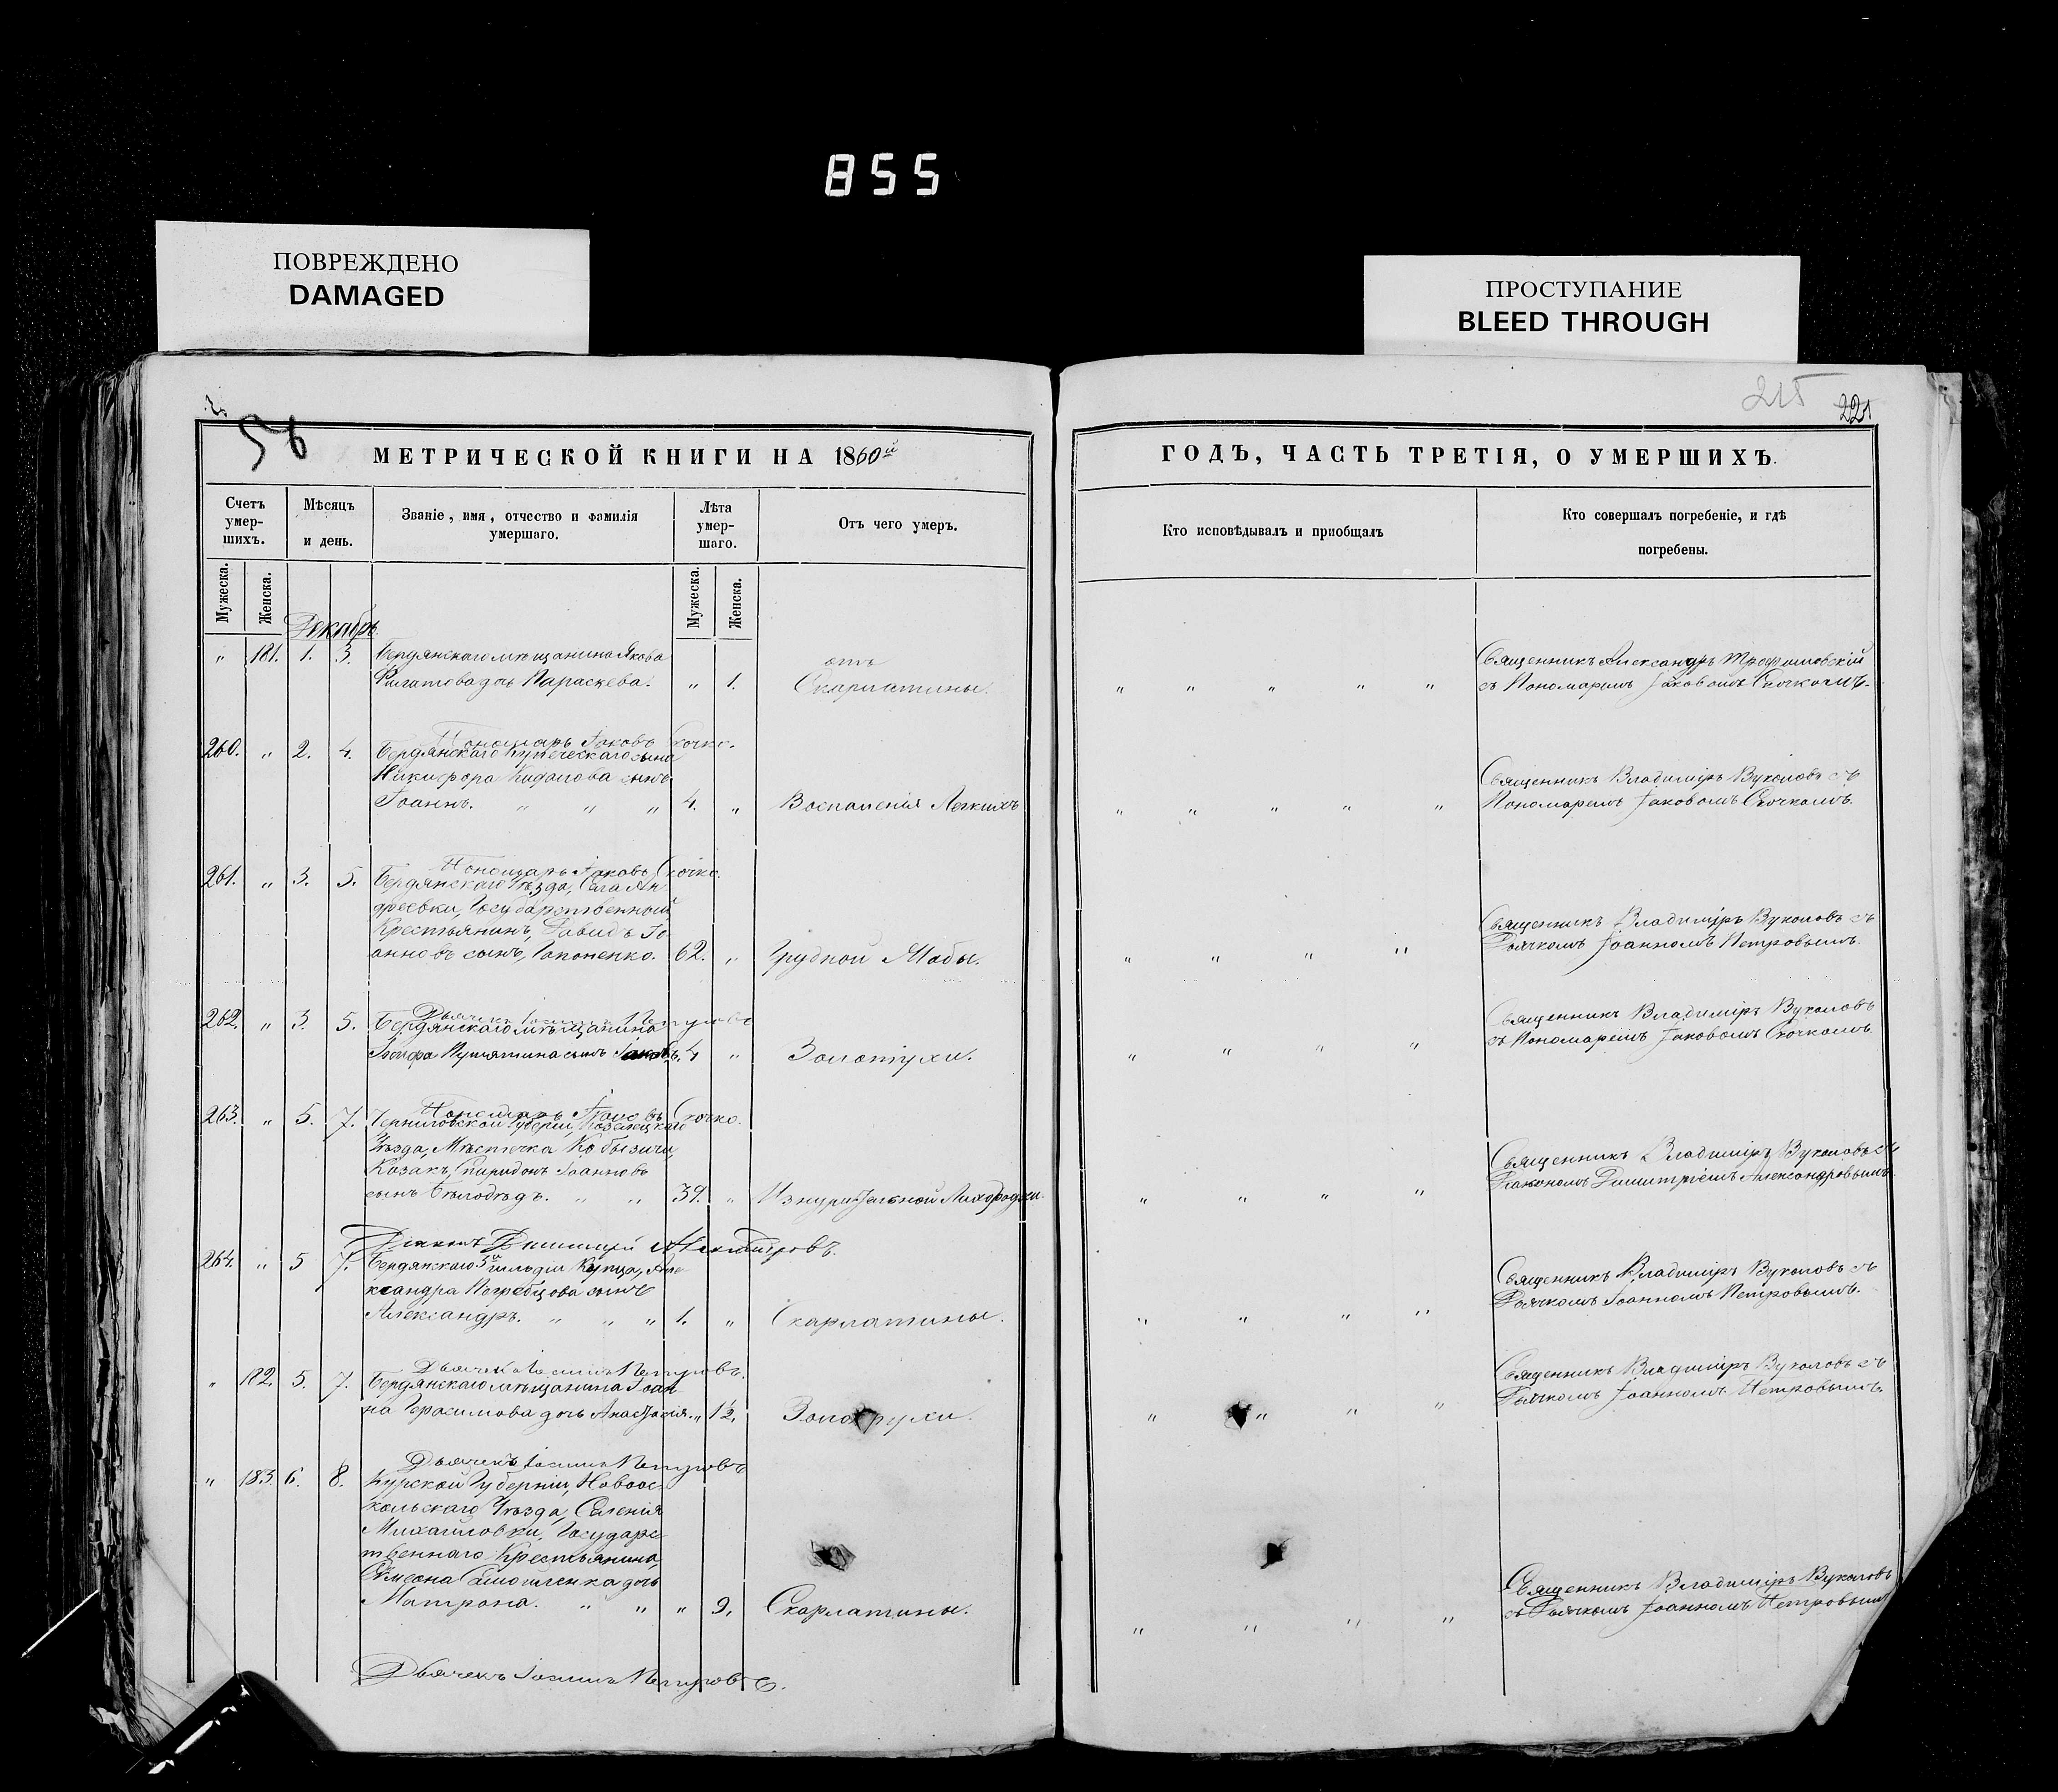 855
ПОВРЕЖДЕНО
DAMAGED
ПРОСТУПАНИЕ
BLEED THROUGH
56
215
221
МЕТРИЧЕСКОЙ КНИГИ НА 1860й
ГОДЪ, ЧАСТЬ ТРЕТІЯ, О УМЕРШИХЪ.
Счетъ умер-шихъ.
Мѣсяцъ и день.
Званіе, имя, отчество и фамилія умершаго.
Лѣта умер-шаго.
Отъ чего умеръ.
Кто исповѣдывалъ и приобщалъ
Кто совершалъ погребеніе, и гдѣ погребены.
Мужеска.
Женска.
Мужеска.
Женска.
Декабрь
" 181. 1. 3. Бердянскаго мѣщанина Якова отъ Священникъ Александръ Трофимовскій
Филатова дочь Параскева. " 1. Скарлатины. " " " " " съ Пономаремъ Іаковомъ Скочкомъ.
Пономарь Іаковъ Скочко.
260. " 2. 4. Бердянскаго Купеческаго сына
Никифора Кидалова сынъ Священникъ Владиміръ Вуколовъ съ
Іоаннъ. " " " 4. " Воспаленія Легкихъ " " " " " Пономаремъ Іаковомъ Скочкомъ.
Пономарь Іаковъ Скочко.
261. " 3. 5. Бердянскаго Уѣзда, Села Ан-
дреевки, Государственный
Крестьянинъ, Давидъ Іо- Священникъ Владиміръ Вуколовъ съ
анновъ сынъ, Гапоненко. 62. " Грудной Жабы. " " " " Дьячкомъ Іоанномъ Петровымъ.
Дьячекъ Іоаннъ Петровъ
262. " 3. 5. Бердянскаго мѣщанина Священникъ Владиміръ Вуколовъ
Іосифа Путятина сынъ Іаковъ. 4 " Золотухи. " " " " съ Пономаремъ Іаковомъ Скочкомъ
Пономарь Іаковъ Скочко.
263. " 5. 7. Черниговской Губерніи, Козелецкаго
Уѣзда, Мѣстечка Кобызичи, Священникъ Владиміръ Вуколовъ съ
Козакъ, Спиридонъ Іоанновъ Діакономъ Димитріемъ Александровымъ
сынъ Бѣлодѣдъ. " " 39. " Изнурительной Лихорадки. " " " "
Діаконъ Димитрій Александровъ.
264. " 5 7. Бердянскаго 3й гильдіи Купца, Але- Священникъ Владиміръ Вуколовъ съ
ксандра Погребцова сынъ Дьячкомъ Іоанномъ Петровымъ.
Александръ. " " " 1. " Скарлатины. " " " "
Дьячекъ Іоаннъ Петровъ.
" 182. 5. 7. Бердянскаго мѣщанина Іоан- Священникъ Владиміръ Вуколовъ съ
на Герасимова дочь Анастасія. " 1½. Золотухи. " " " " Дьячкомъ Іоанномъ Петровымъ.
Дьячекъ Іоаннъ Петровъ
" 183. 6. 8. Курской Губерніи, Новоос-
кольскаго Уѣзда, Селенія
Михайловки, Государс-
твеннаго Крестьянина,
Симеона дочь Священникъ Владиміръ Вуколовъ
Матрона. " " " 9. Скарлатины. " " " " съ Дьячкомъ Іоанномъ Петровымъ
Дьячекъ Іоаннъ Петровъ.